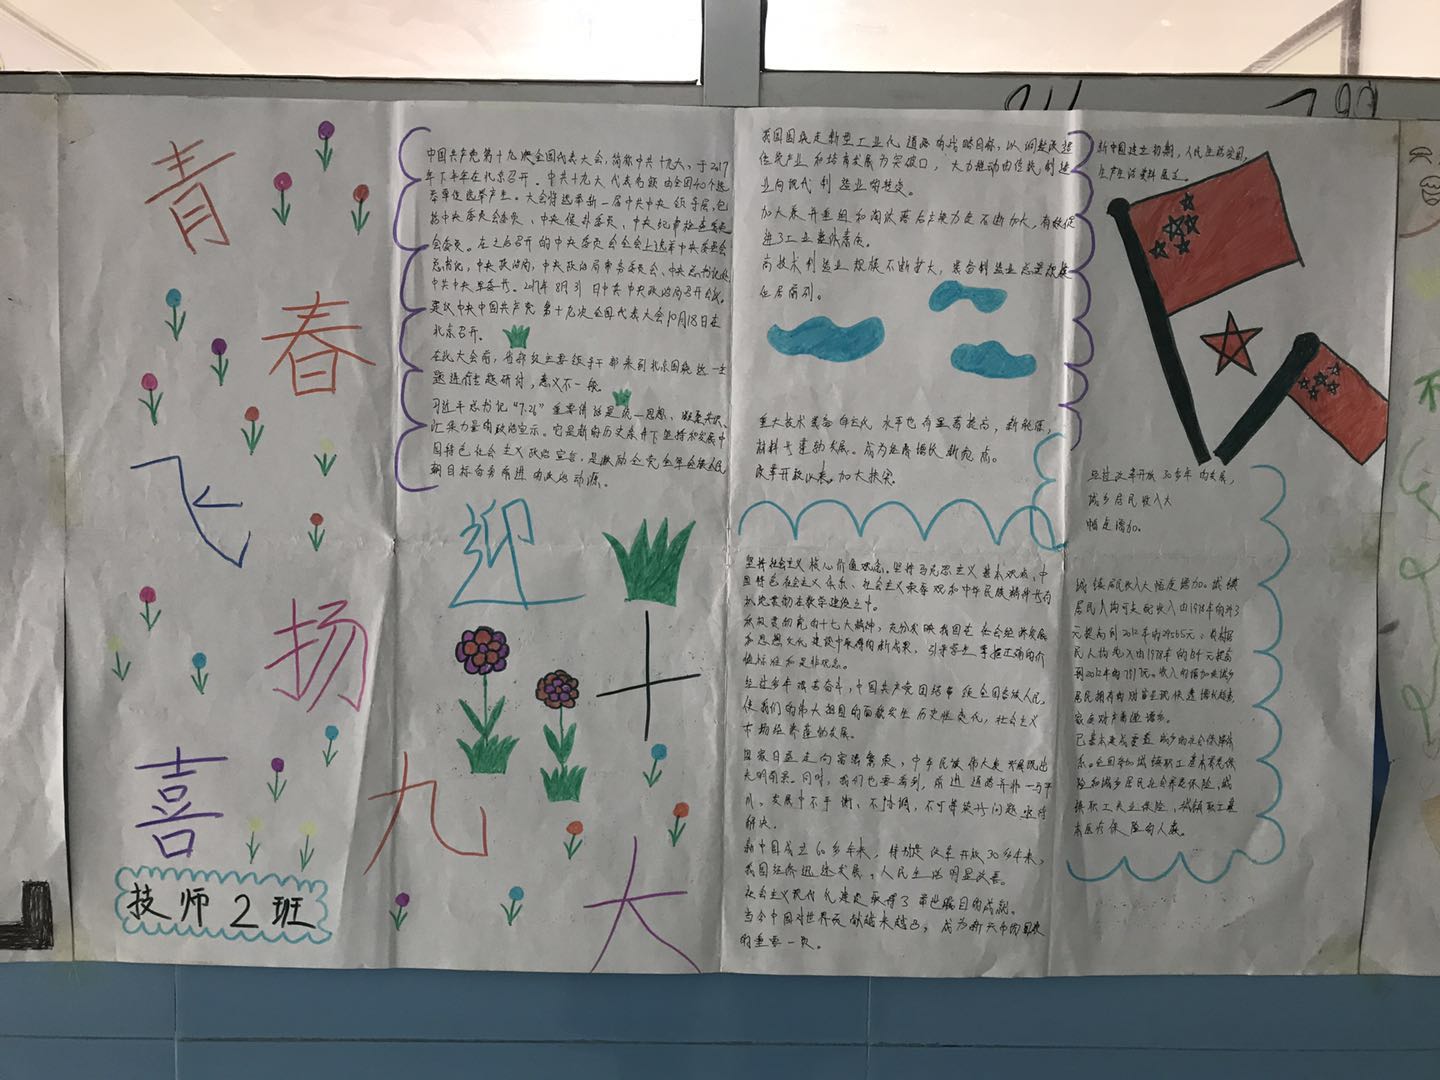 青
春
飞
扬
喜
迎
十
九
大
技师2班
中国共产党第十九次全国代表大会,简称中共十九大,于2017
年下半年在北京召开。中共十九大代表名额由全国40个选
举单位选举产生。大会将选举新一届中共中央领导层,包
括中央委员会委员、中央候补委员、中央纪律检查委员
会委员。在之后召开的中央委员会全会上选举中央委员会
总书记,中央政治局,中央政治局常务委员会、中央总书记
中共中央军委。2017年8月31日中共中央政治局召开会议。
建议中央中国共产党第十九次全国代表大会10月18日在
北京召开。
在此大会前,省部级主要领导干部来到北京围绕这一主
题进行专题研讨,意义不一般。
习近平总书记“7.26”重要讲话是统一思想、凝聚共识、
汇集力量的政治宣示。它是新的历史条件下坚持和发展中
国特色社会主义政治宣言,是激励全党全军全族人民
朝目标奋勇前进的政治动源。
我国围绕走新型工业化道路的战略目标,以调整改造
传统产业和培育发展为突破口,大力推动由传统制造
业向现代制造业的转变。
加大兼并重组和淘汰落后产换力度不断加大,有效促
进了工业整体素质。
高技术制造业规模不断扩大,装备制造业总量规模
位居前列。
重大技术装备自主化水平也有显著提高,新能源,
材料等蓬勃发展。成为经济增长新亮点。
改革开放以来。加大扶突。
坚持社会主义核心价值观念。坚持马克思主义基本观点、中
国特色社会主义体系、社会主义荣辱观和中华民族精神教育
扎地贯彻在教学建设之中。
党的十七大精神,充分反映我国在社会经济发展
和思想文化建设中取得的新成果,引导学生掌握正确的价
值标准和是非观念。
经过多年艰苦奋斗,中国共产党团结带领全国各族人民,
使我们的伟大祖国的面貌发生历史性变化,社会主义
市场经济蓬勃发展。
国家日益走向富强繁荣,中华民族伟大复兴展现出
光明前景。同时,我们也要看到,前进道路并非一马平
川,发展中不平衡、不协调,不可持续等问题亟待
解决。
新中国成立60多年来,特别是改革开放30多年来,
我国经济迅速发展,人民生活明显改善。
社会主义现代化建设取得了举世瞩目的成就。
当今中国对世界贡献越来越凸,成为新兴市场国家
的重要一员。
新中国建立初期,人民生活贫困,
生产生活资料匮乏。
经过改革开放30多年的发展,
城乡居民收入大
幅度增加。
城镇居民收入大幅度增加。城镇
居民人均可支配收入由1978年的343
元提高到2012年的24565元;农村居
民人均纯收入由1978年的134元提高
到2012年的7917元。收入的增加使城乡
居民拥有的财富呈现快速增长趋势,
家庭财产普遍增多。
已基本建成覆盖城乡的社会保障体
系。全国参加城镇职工基本养老保
险和城乡居民社会养老保险,城
镇职工失业保险,城镇职工基
本医疗保险的人数。